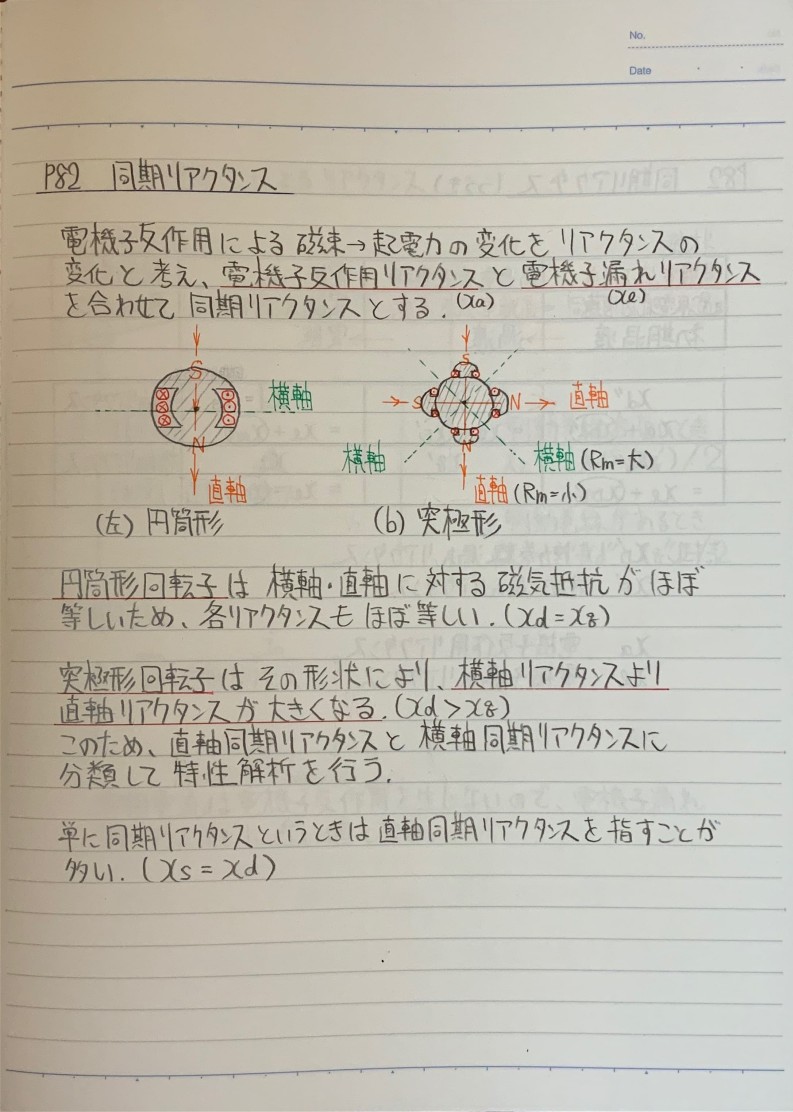 No.
Date
P82 同期リアクタンス
電機子反作用による磁束→起電力の変化をリアクタンスの
変化と考え、電機子反作用リアクタンスと電機子漏れリアクタンス
を合わせて同期リアクタンスとする. (xa) (xe)
S
横軸
N
直軸
(左) 円筒形
S
S N 直軸
N
横軸
横軸 (Rm=大)
直軸 (Rm=小)
(b) 突極形
円筒形回転子は横軸・直軸に対する磁気抵抗がほぼ
等しいため、各リアクタンスもほぼ等しい. (xd=xg)
突極形回転子はその形状により、横軸リアクタンスより
直軸リアクタンスが大きくなる. (xd>xg)
このため、直軸同期リアクタンスと横軸同期リアクタンスに
分類して特性解析を行う.
単に同期リアクタンスというときは直軸同期リアクタンスを指すことが
多い. (xs=xd)